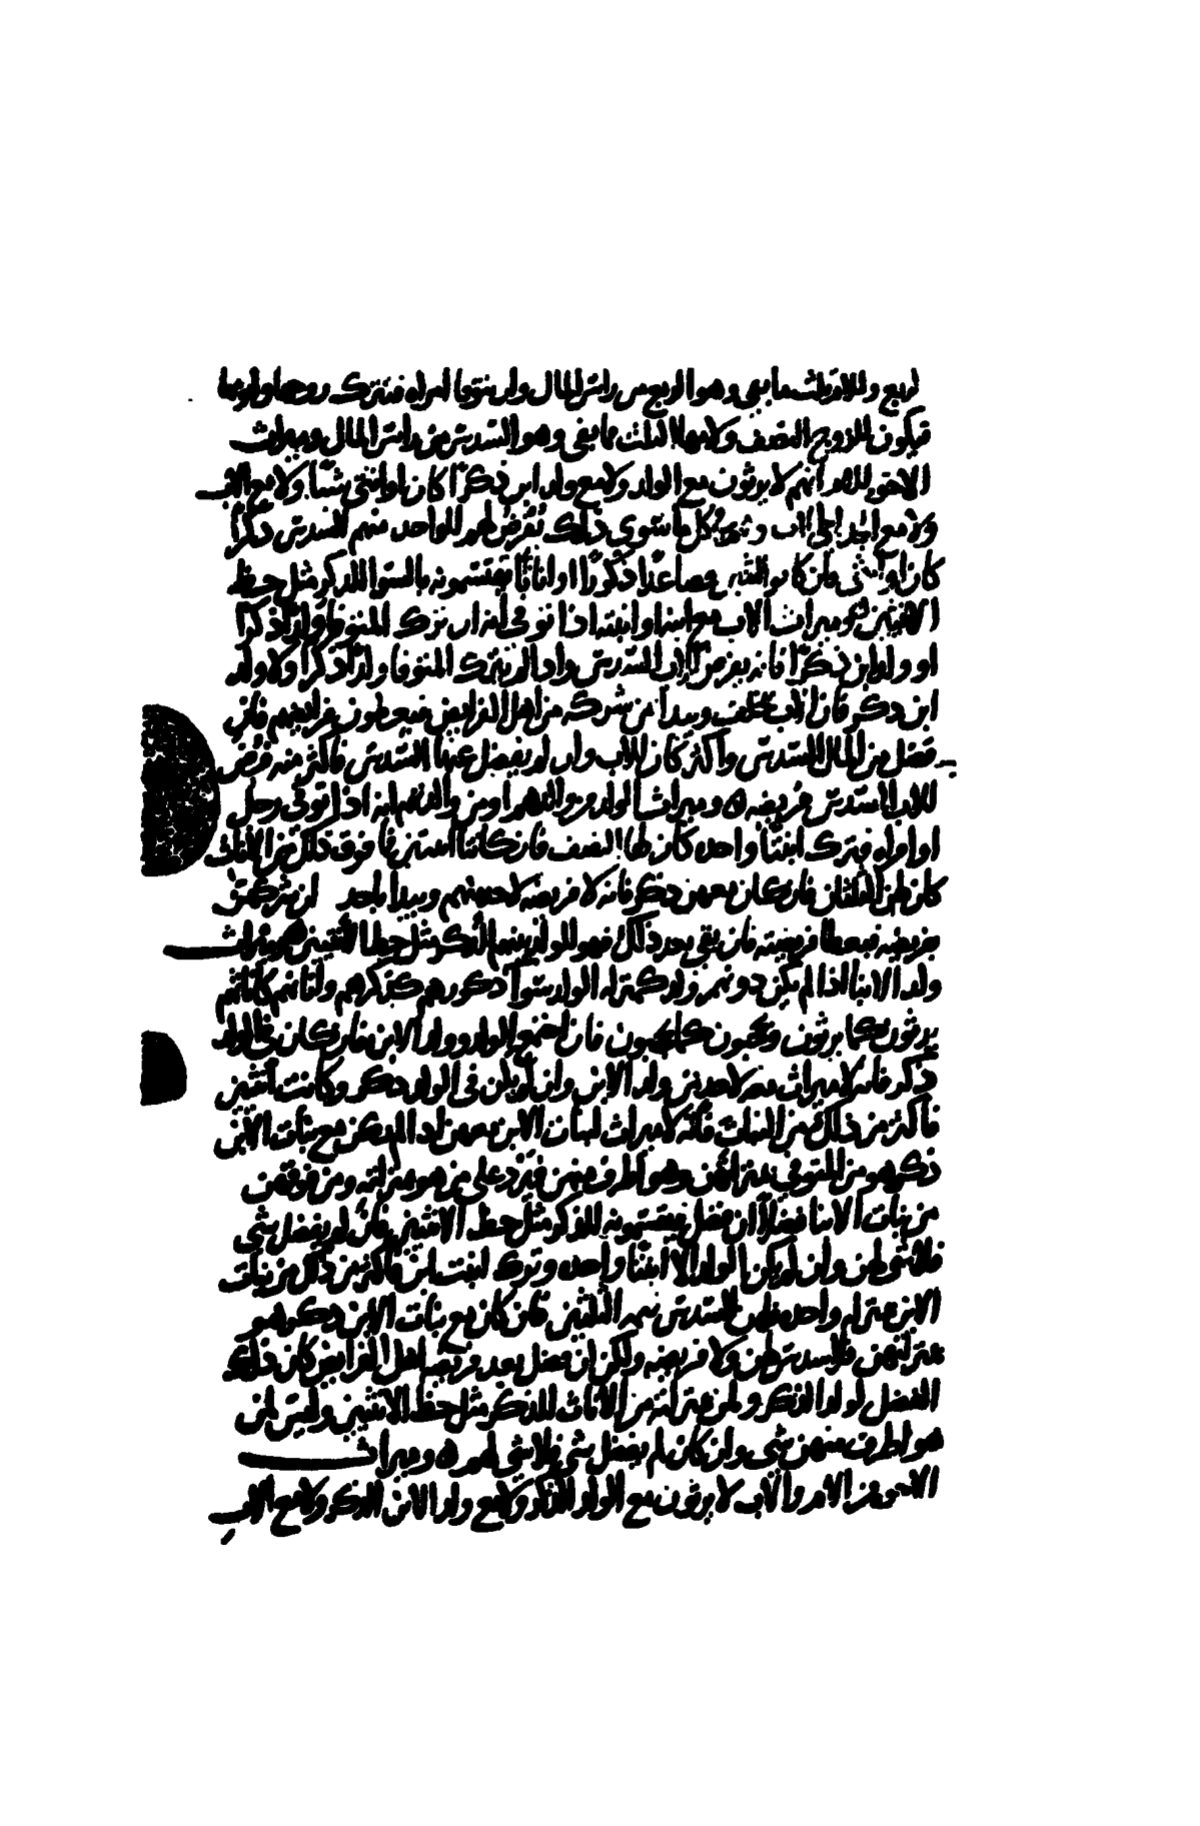 الربع وللام ثلث ما بقي وهو الربع من راس المال وان تتوفا امراه فتترك زوجها وابويها
فيكون للزوج النصف ولامها الثلث مما بقي وهو السدس من راس المال وميراث
الاخوه للام انهم لا يرثون مع الولد ولا مع ولد ابن ذكرا كان او انثى شيا ولا مع الاب
ولا مع الجد ابي الاب وهم في كل ما سوى ذلك يفرض لهم للواحد منهم السدس ذكرا
كان او انثى فان كانوا اثنين فصاعدا ذكورا او اناثا يقتسمونه بالسوا للذكر مثل حظ
الانثيين وميراث الاب مع ابنه او ابنته اذا توفي انه ان ترك المتوفا ولدا ذكرا
او ولد ابن ذكرا فانه يفرض للاب السدس واذا لم يترك المتوفا ولدا ذكرا ولا ولد
ابن ذكر فان الاب يخلف ويبدا من شركه من اهل الفرايض فيعطون فرايضهم فان
فضل من المال السدس واكثر كان للاب وان لم يفضل عنها السدس فاكثر منه فرض
للاب السدس فريضه وميراث الولد من والدهم او من والدتهم انه اذا توفي رجل
او امراه فترك ابنتا واحده كان لها النصف فان كانتا اثنتين فما فوق ذلك من الاناث
كان لهن الثلثان فان كان معهن ذكر فانه لا فريضه لاحد منهم ويبدا باحد ان شركهم
بفريضه فيعطا فريضته فان بقي بعد ذلك فهو للولد بينهم للذكر مثل حظ الانثيين وميراث
ولد الابنا اذا لم يكن دونهم ولد كمنزله الولد سوا ذكورهم كذكرهم واناثهم كاناثهم
يرثون كما يرثون ويحجبون كما يحجبون فان اجتمع الولد وولد الابن فان كان في الولد
ذكر فانه لا ميراث معه لاحد من ولد الابن وان لم يكن في الولد ذكر وكانت اثنتين
فاكثر من ذلك من البنات فانه لا ميراث لبنات الابن معهن اذا لم يكن مع بنات الابن
ذكر هو من المتوفى بمنزلتهن وهو اطرف منهن فيرد على من هو بمنزلته ومن فوقهن
من بنات الابنا فضلا ان فضل فيقتسمونه للذكر مثل حظ الانثيين فان لم يفضل شي
فلا شي لهن وان لم يكن الولد الا ابنتا واحده وترك ابنت ابن فاكثر من ذلك من بنات
الابن بمنزله واحده فلهن السدس تتمه الثلثين فان كان مع بنات الابن ذكر هو
بمنزلتهن فلا سدس لهن ولا فريضه ولكن ان فضل بعد فريضه اهل الفرايض كان ذلك
الفضل لولد الذكر ولمن بمنزلته من الاناث للذكر مثل حظ الانثيين وليس لمن
هو اطرف منهن شي وان كان لم يفضل شي فلا شي لهم وميراث
الاخوه من الام والاب لا يرثون مع الولد الذكر ولا مع ولد الابن الذكر ولا مع الاب